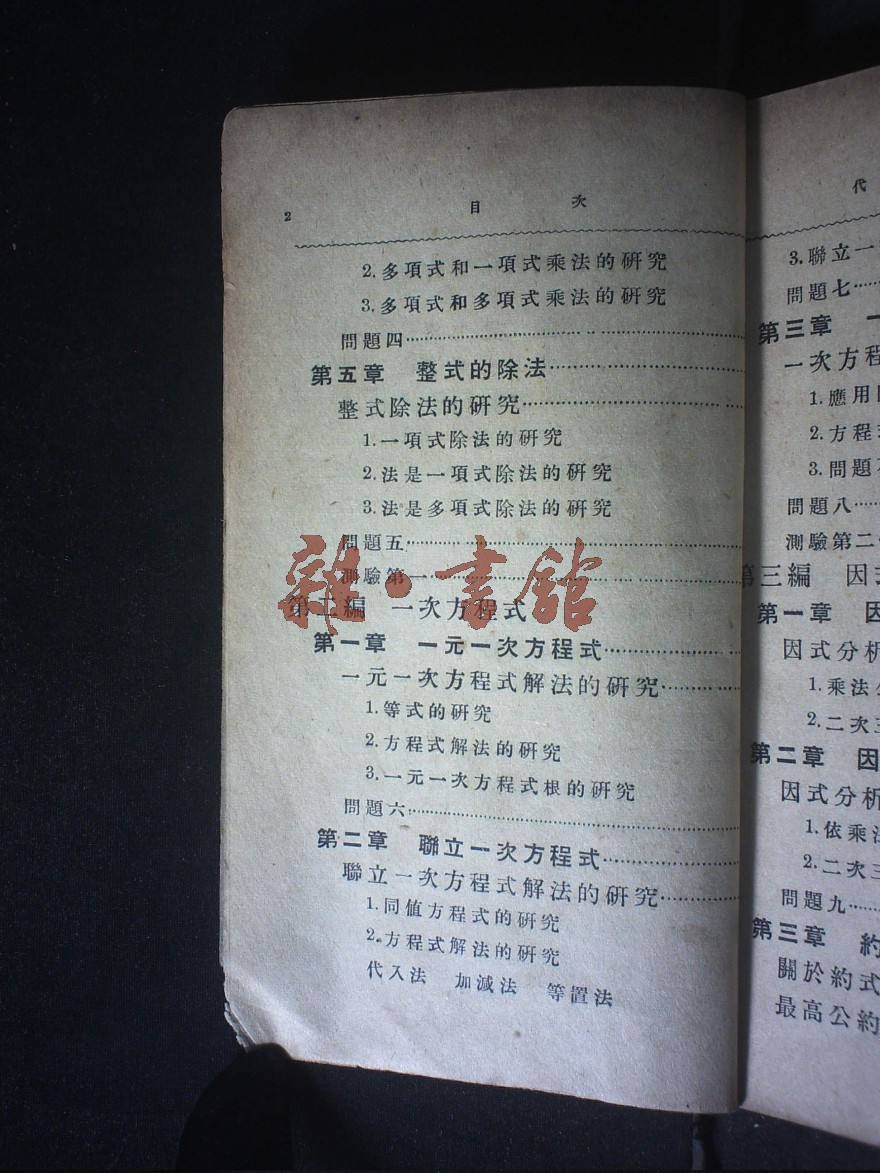 2 目 次
2.多項式和一項式乘法的研究
3.多項式和多項式乘法的研究
問題四
第五章 整式的除法
整式除法的研究
1.一項式除法的研究
2.法是一項式除法的研究
3.法是多項式除法的研究
問題五
測驗第一
第二編 一次方程式
第一章 一元一次方程式
一元一次方程式解法的研究
1.等式的研究
2.方程式解法的研究
3.一元一次方程式根的研究
問題六
第二章 聯立一次方程式
聯立一次方程式解法的研究
1.同值方程式的研究
2.方程式解法的研究
代入法 加減法 等置法
雜·書館
代
3.聯立一
問題七
第三章 一
一次方程
1.應用
2.方程
3.問題
問題八
測驗第二
第三編 因式
第一章 因
因式分析
1.乘法
2.二次三
第二章 因
因式分析
1.依乘法
2.二次三
問題九
第三章 約
關於約式
最高公約